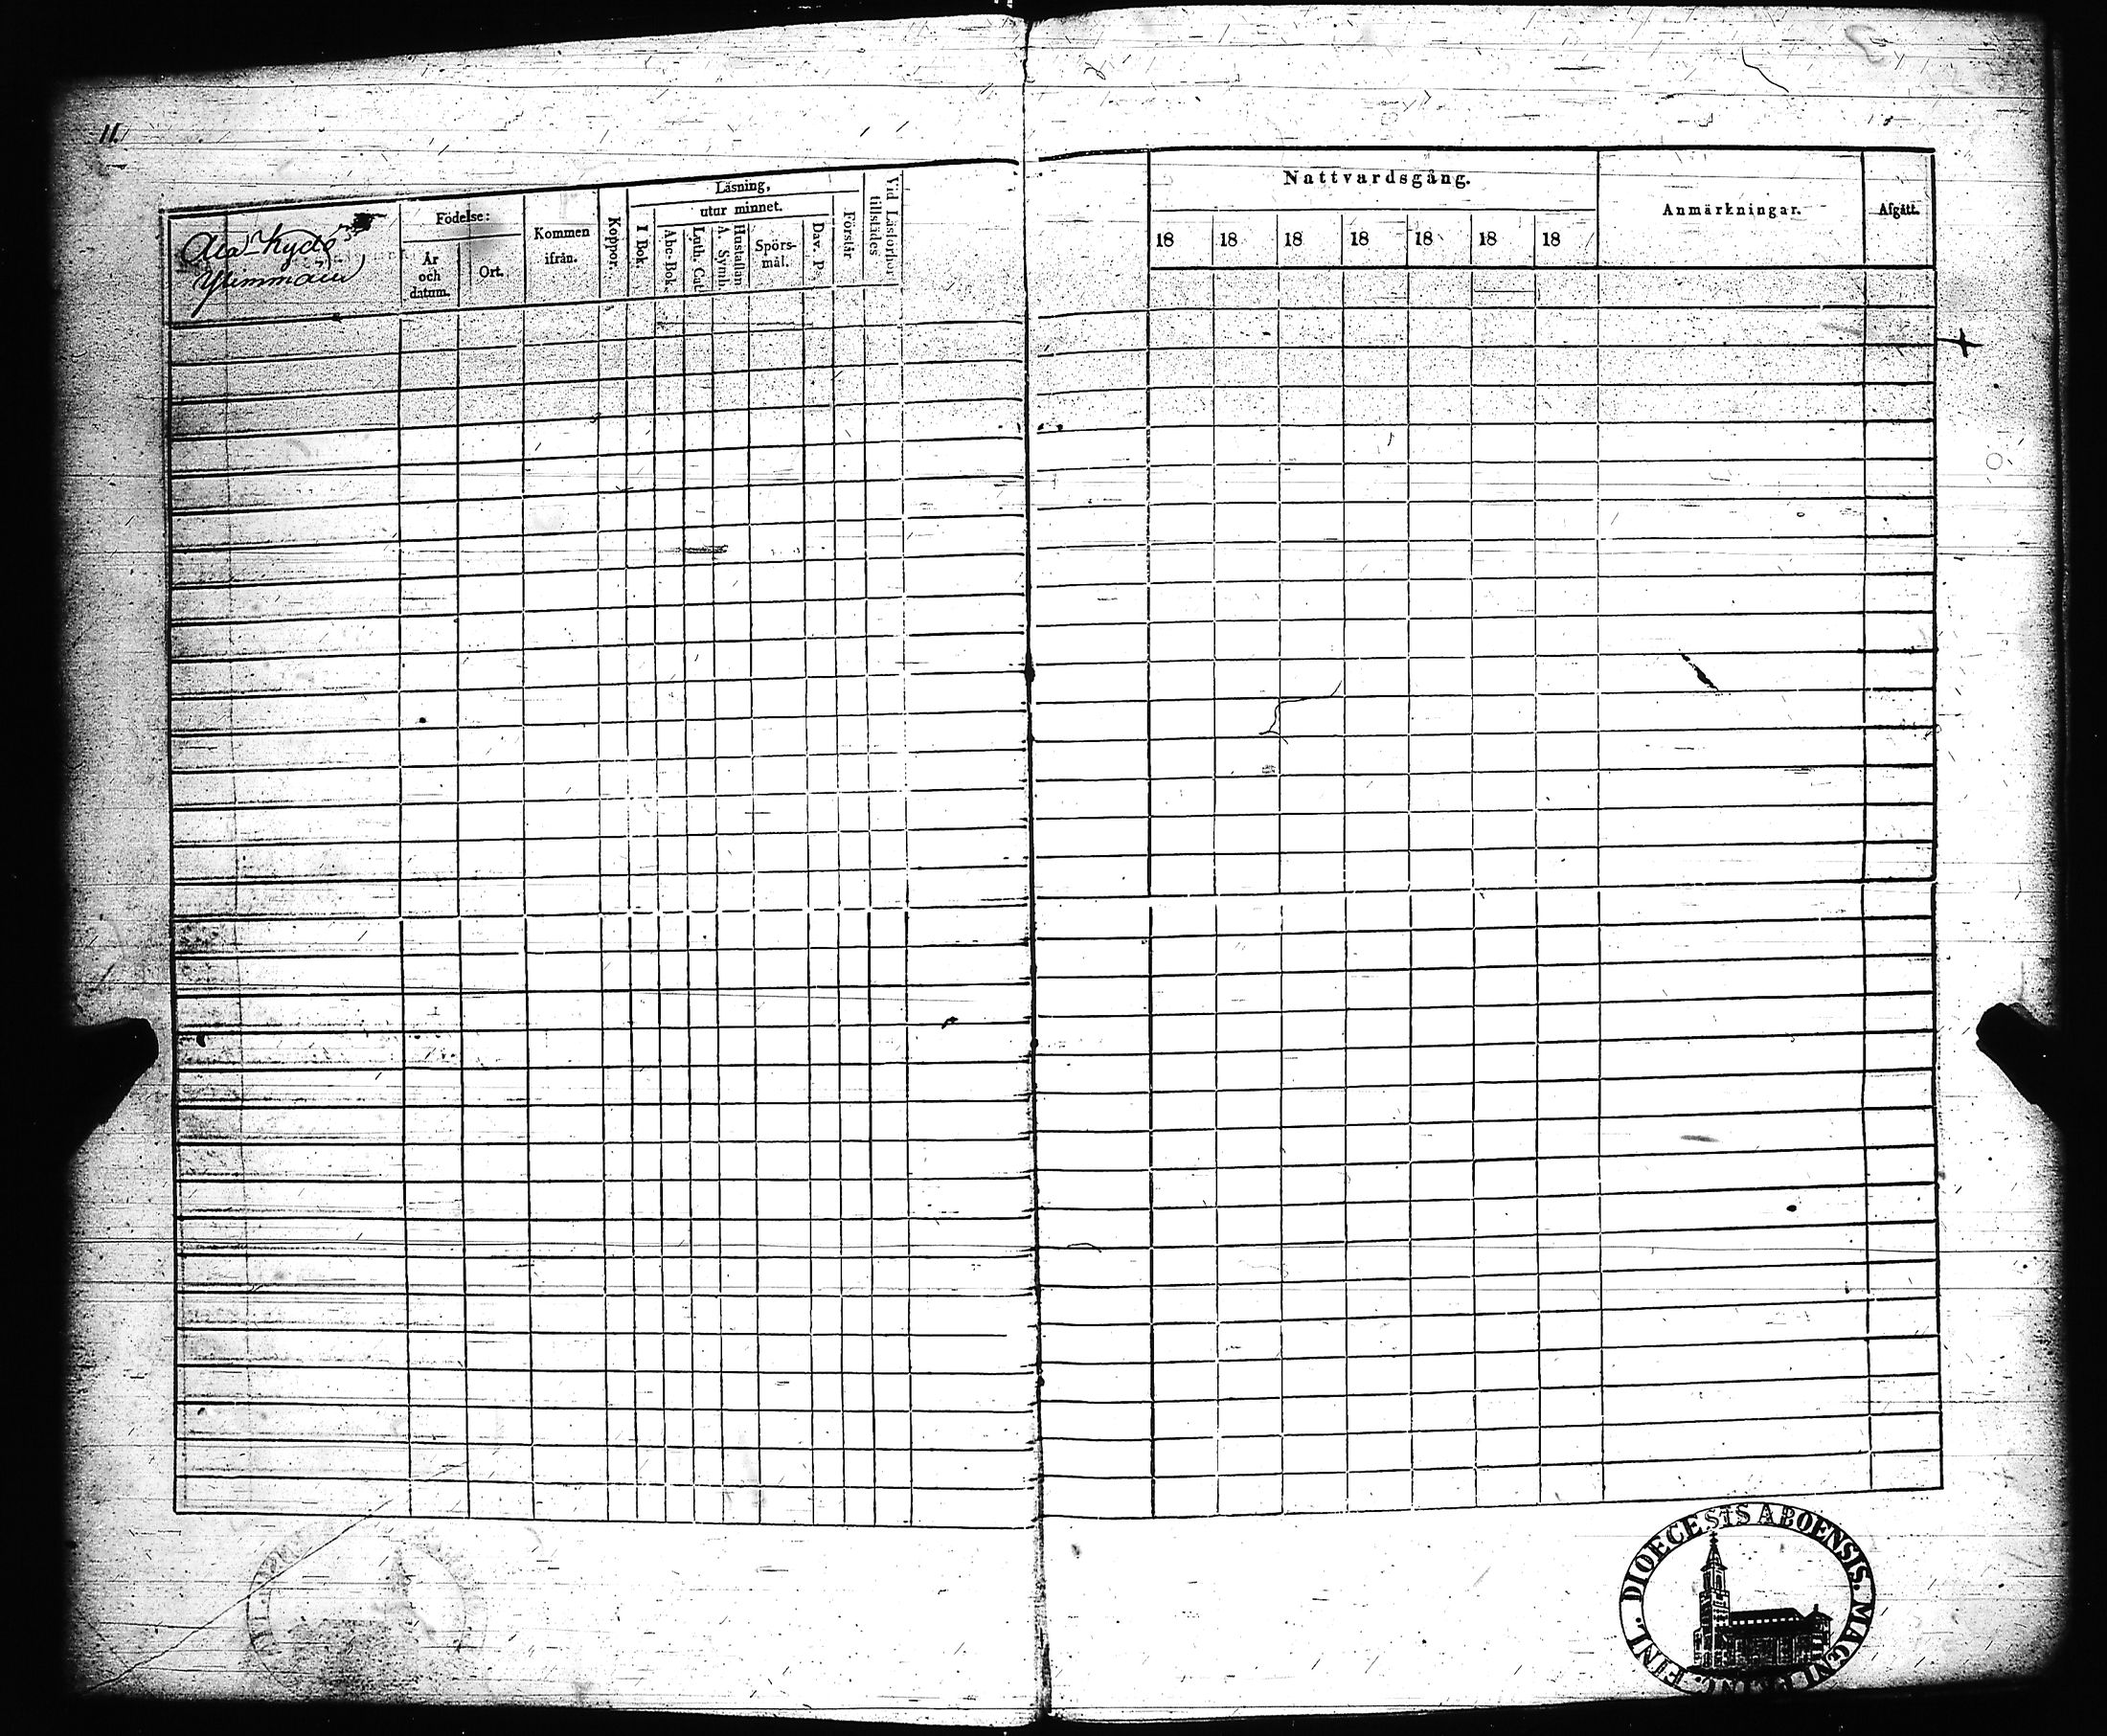 11.
Ala-Kydö
Ylimmäin
Födelse:
År och datum.
Ort.
Kommen ifrån.
Koppor.
Läsning,
utur minnet.
I Bok.
Abc-Bok.
Luth. Cat.
A. Symb.
Hustaflan
Spörsmål.
Dav. Ps.
Förstår
Vid Läsförhör tillstädes
Nattvardsgång.
18 18 18 18 18 18 18
Anmärkningar.
Afgått.
FINL. DIOECESIS ABOENSIS. MAGNI PRINC.